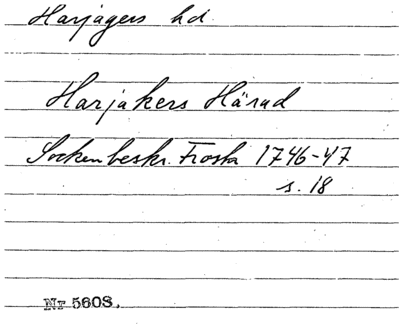 Harjagers hd
Harjakers Härad
Sockenbeskr. Frosta 1746-47
s. 18
Nr 5608.